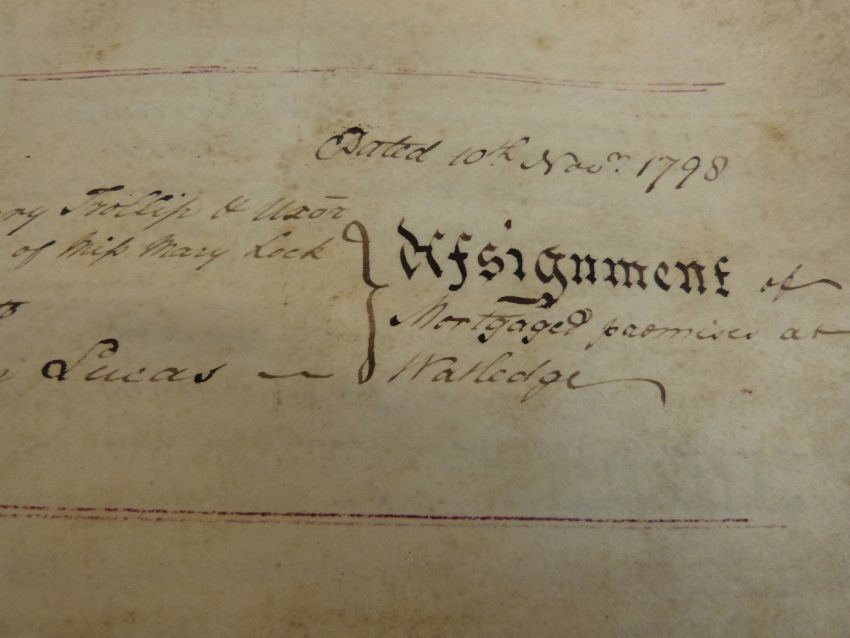 Dated 10th Novr. 1798
ry Trollip & Uxor
of Miss Mary Lock
Lucas
Assignment of
Mortgaged premises at
Watledge